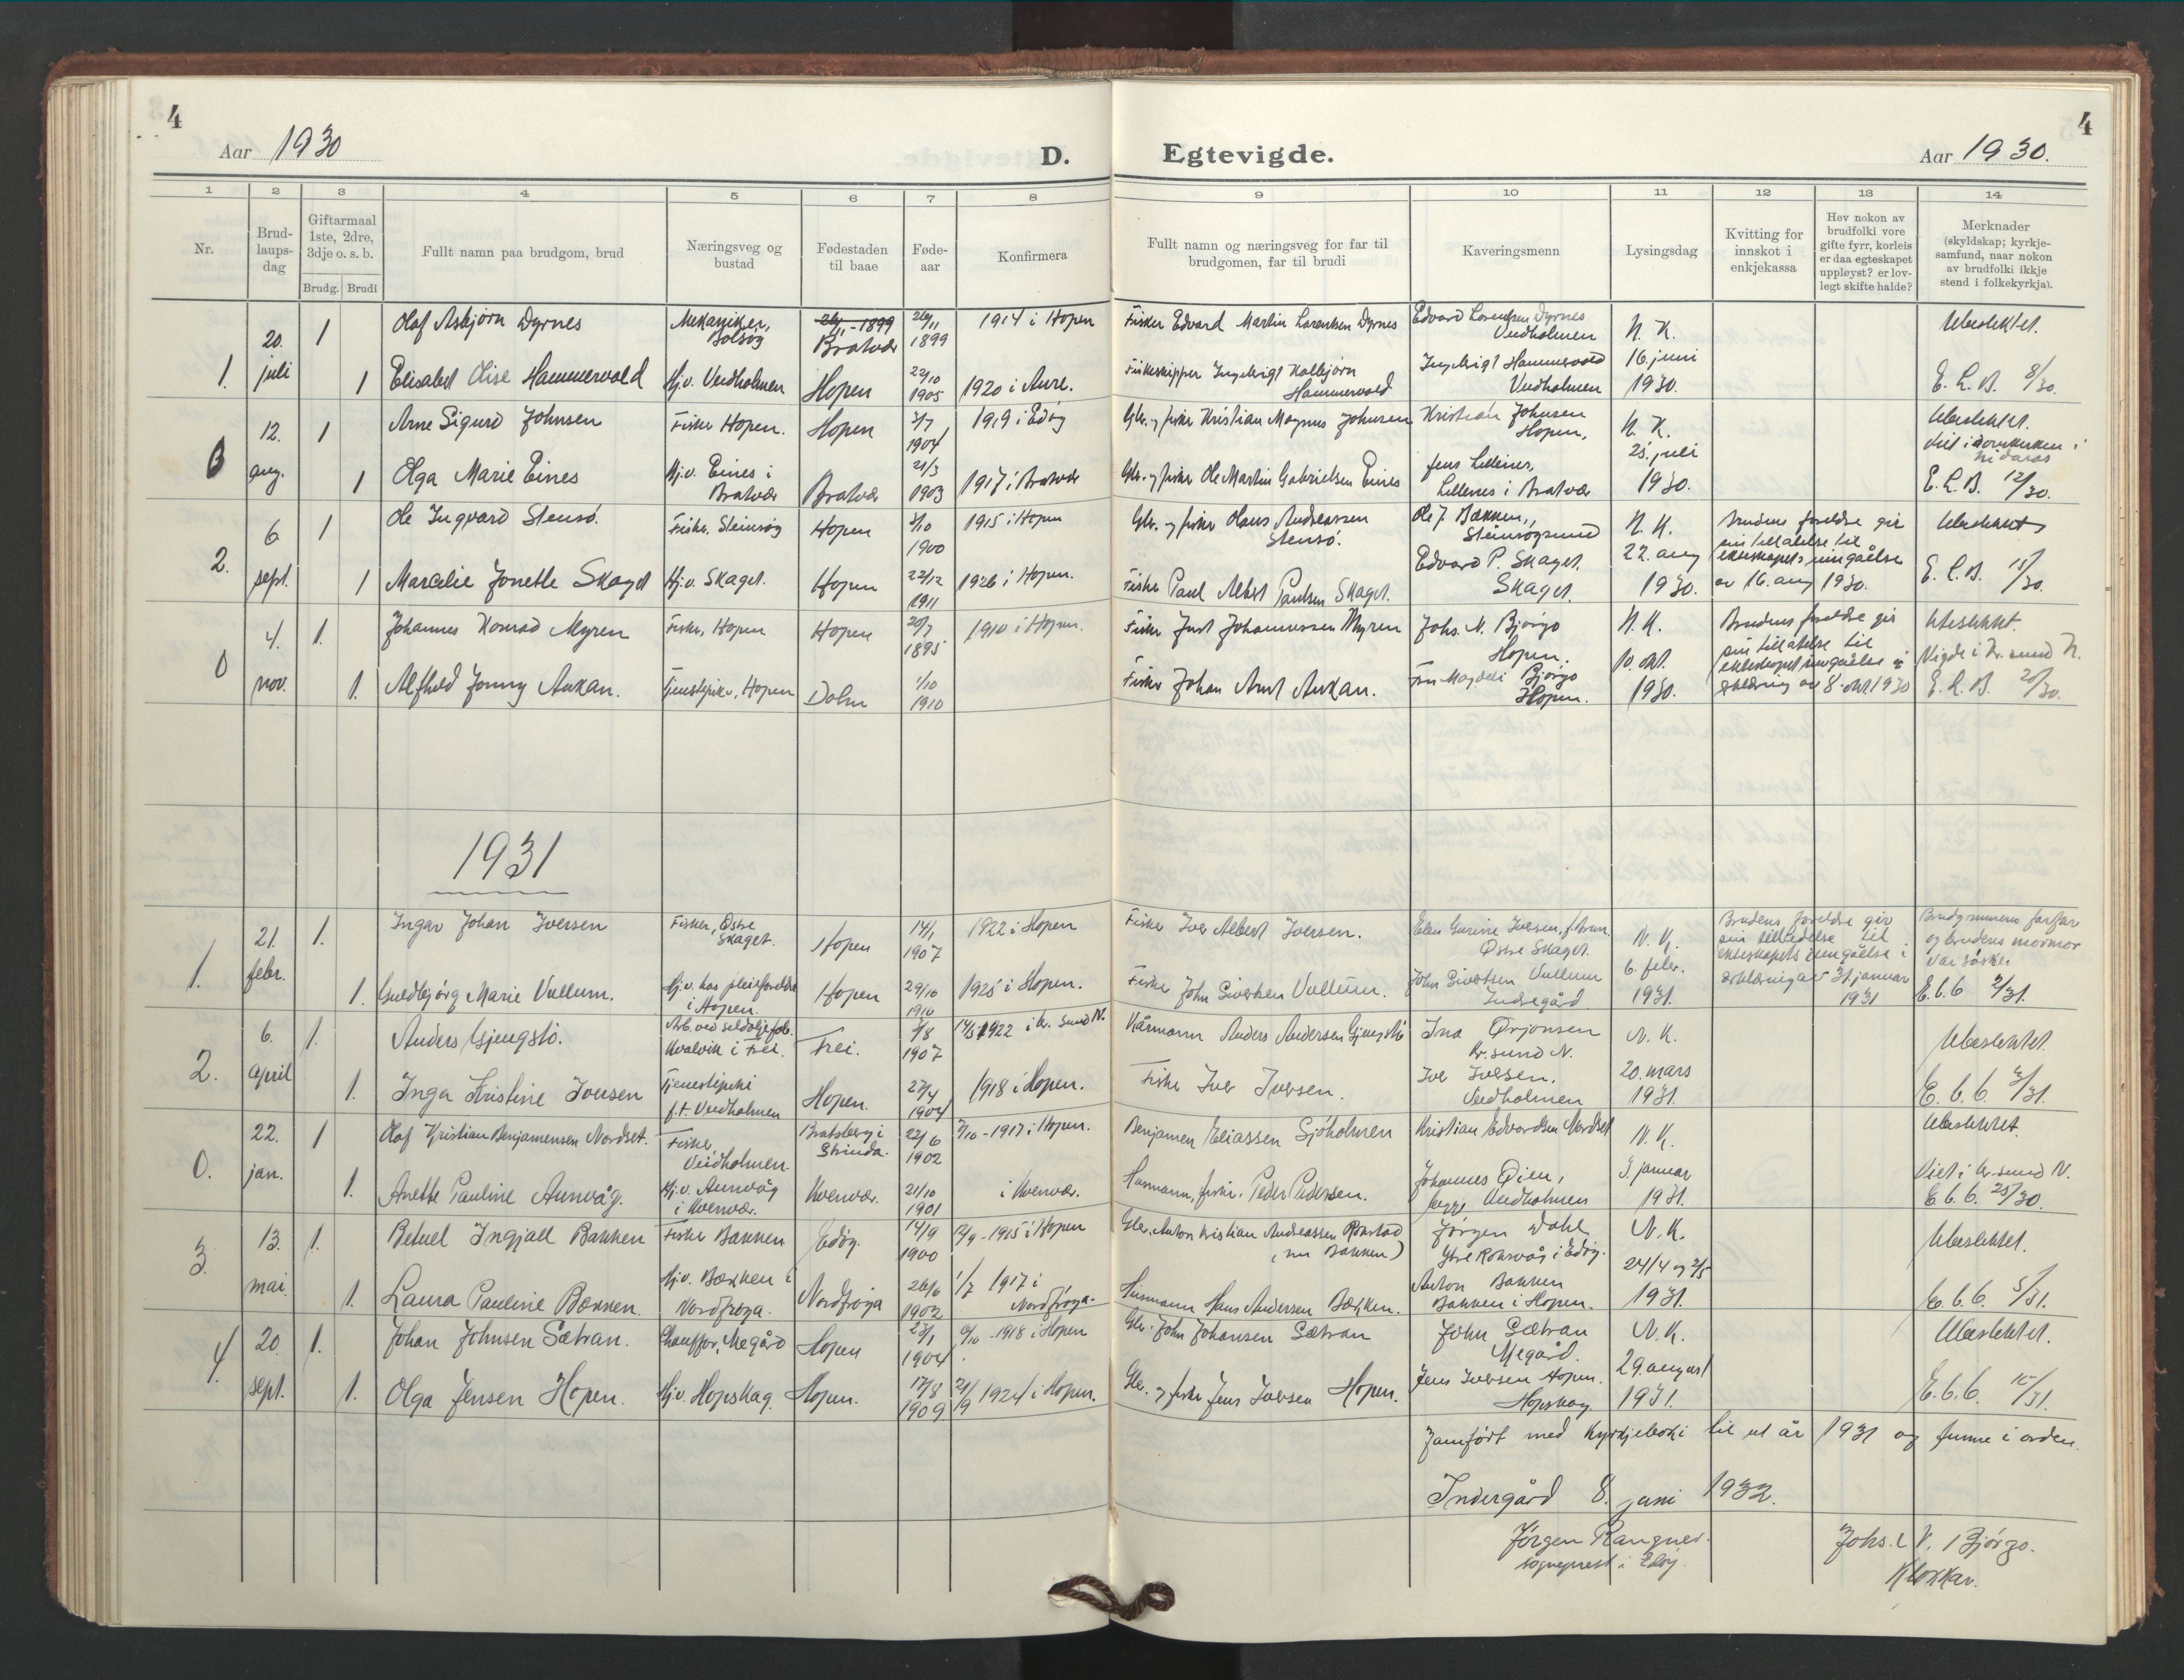 4
Aar 1930
D.
Egtevigde.
Aar 1930.
4
1 2 3 4 5 6 7 8 9 10 11 12 13 14
Nr.
Brud-
laups-
dag
Giftarmaal
1ste, 2dre,
3dje o. s. b.
Brudg. Brudi
Fullt namn paa brudgom, brud
Næringsveg og
bustad
Fødestaden
til baae
Føde-
aar
Konfirmera
Fullt namn og næringsveg for far til
brudgomen, far til brudi
Kaveringsmenn
Lysingsdag
Kvitting for
innskot i
enkjekassa
Hev nokon av
brudfolki vore
gifte fyrr, korleis
er daa egteskapet
uppløyst? er lov-
legt skifte halde?
Merknader
(skyldskap; kyrkje-
samfund, naar nokon
av brudfolki ikkje
stend i folkekyrkja).
1. 20. juli
1 Olaf Asbjørn Dyrnes
Mekaniker,
26/11-1899
Bratvær
26/11 1899
1914 i Hopen
Fisker Edvard Martin Lorentsen Dyrnes
Edvard Lorentsen Dyrnes
Veidholmen
N. K.
16. juni
1930.
Ubeslektet.
1 Elisabet Olise Hammervold
Hj.v. Veidholmen
Hopen
22/10 1905
1920 i Aure.
Fiskeskipper Ingebrigt Kolbjørn
Hammervold
Ingebrigt Hammervold
Veidholmen
E. L. B. 8/30.
0 12. aug.
1 Arne Sigurd Johnsen
Fisker Hopen.
Hopen
3/7 1904
1919 i Edøy
Gbr. og fisker Kristian Magnus Johnsen
Kristian Johnsen
Hopen,
N. K.
25. juli
1930.
Ubeslektet.
Viet i domkirken i
Nidaros
1 Olga Marie Eines
Hj.v. Eines i
Bratvær
Bratvær
21/3 1903
1917 i Bratvær
Gbr. og fisker Ole Martin Gabrielsen Eines
Jens Lillenes,
Lillenes i Bratvær
E. L. B. 12/30.
2. 6. sept.
1 Ole Ingvard Stensø.
Fisker, Steinsøy
Hopen
1900
1915 i Hopen
Gbr. og fisker Hans Andreassen
Stensø.
Ole J. Bakken,
Steinsøysund
N. K.
22. aug
1930.
Brudens foreldre gir
sin tillatelse til
ekteskapets inngåelse
av 16. aug 1930.
Ubeslektet
1 Marcelie Jonette Skaget
Hj.v. Skaget.
Hopen
22/12 1911
1926 i Hopen.
Fisker Paul Albert Paulsen Skaget.
Edvard P. Skaget.
Skaget.
E. L. B. 15/30.
0 4. nov.
1. Johannes Konrad Myren
Fisker, Hopen
Hopen
20/7 1895
1910 i Hopen.
Fisker Just Johannessen Myren
Johs. N. Bjørgo
Hopen.
N. K.
10. okt.
1930.
Brudens foreldre gir
sin tillatelse til
ekteskapets inngåelse i
erklæring av 8. okt. 1930
Ubeslektet.
Vigde i Kr.sund N.
1. Alfhild Jenny Aukan.
Tjenestepike, Hopen
Dolm
1/10 1910
Fisker Johan Arnt Aukan.
Fru Magdeli Bjørgo
Hopen.
E. L. B. 20/30.
1931
1. 21. febr.
1. Ingar Johan Iversen
Fisker, Østre
Skaget.
Hopen
14/1 1907
1922 i Hopen
Fisker Iver Albert Iversen.
Elen Gurine Iversen,
Østre Skaget.
N. K.
6. febr.
1931.
Brudens foreldre gir
sin tilladelse til
ekteskapets inngåelse i
erklæring av 31 januar
1931
Brudgommens farfar
og brudens mormor
var søsken
1. Guldbjørg Marie Vullum.
Hj.v. hos pleieforeldre
i Hopen.
Hopen
29/10 1910
1925 i Hopen.
Fisker John Sivertsen Vullum.
John Sivertsen Vullum
Indregård
E. b. b 2/31.
2. 6. april
1. Anders Gjengstø.
Arb. ved sildoljefab.
Kvalvik i Frei.
Frei.
1907
1922 i Kr. sund N.
Kårmann Anders Andersen Gjengstø
Ina Ørjansen
Kr.sund N.
N. K.
20. mars
1931.
Ubeslektet.
1. Inga Kristine Iversen
Tjenestepike
f.t. Veidholmen
Hopen.
27/4 1904
1918 i Hopen.
Fisker Iver Iversen.
Iver Iversen.
Veidholmen
E. b. b. 3/31.
0. 22. jan.
1 Olaf Kristian Benjamensen Nordset.
Fisker,
Veidholmen
Bratsberg i
Strinda.
22/6 1902
7/10 - 1917 i Hopen.
Benjamen Eliassen Sjøholmen
Kristian Edvardsen Nordset
N. K.
3 januar
1931.
Ubeslektet.
Viet i Kr.sund N.
1. Anette Pauline Aunvåg.
Hj.v. Aunvåg
i Kvenvær.
Kvenvær.
21/10 1901
i Kvenvær.
Husmann, fisker, Peder Pedersen.
Johannes Øien,
begge Veidholmen
E. b. b. 25/30.
3. 13. mai.
1. Betuel Ingjald Bakken
Fisker Bakken
Edøy.
14/9 1900
12/9 - 1915 i Hopen
Gbr. Anton Kristian Andreassen Rokstad
(nu Bakken)
Jørgen Dahl
Ytre Roksvåg i Edøy.
N. K.
24/4 og 2/5
1931.
Ubeslektet.
1. Laura Pauline Bækken.
Hj.v. Bækken i
Nordfrøya.
Nordfrøya
26/6 1902
1/7 1917 i
Nordfrøya.
Husmann Hans Andersen Bækken.
Anton Bakken
Bakken i Hopen.
E. b. b. 5/31.
4. 20. sept.
1. Johan Johnsen Sætran.
Chauffør, Megård
Hopen
1904
6/10 - 1918 i Hopen
Gbr. John Johansen Sætran
John Sætran
Megård.
N. K.
29 august
1931.
Ubeslektet.
1. Olga Jensen Hopen.
Hj.v. Hopskag.
Hopen.
17/8 1909
21/9 1924 i Hopen.
Gbr. og fisker Jens Iversen Hopen.
Jens Iversen Hopen.
Hopskag
E. b. b. 10/31.
Jamført med kyrkjeboki til ut år 1931 og funne i orden.
Indergård 8. juni 1932.
Jørgen Rangnes.
sogneprest i Edøy.
Johs. N. Bjørgo.
Klokkar.